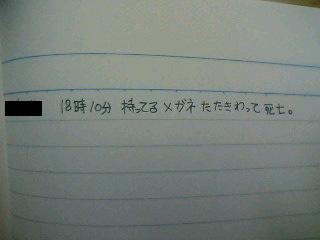 18時10分 持ってるメガネ たたきわって 死亡。